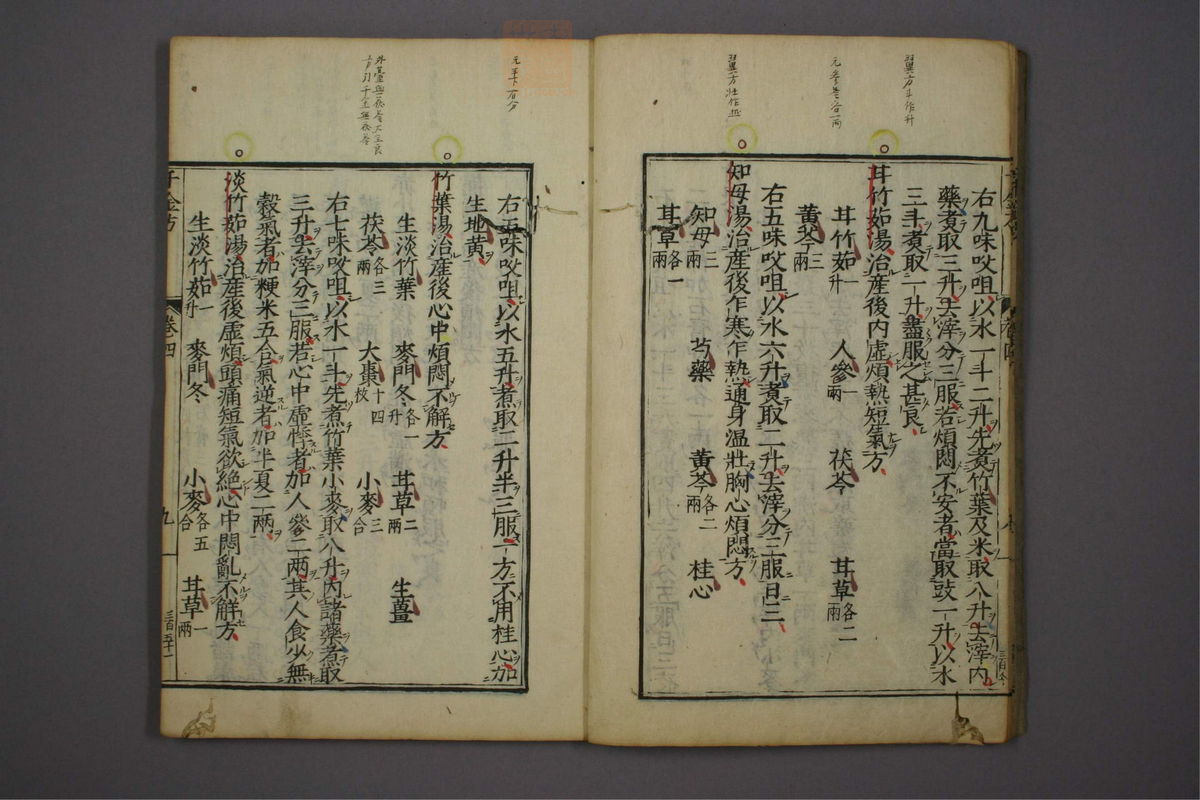 右九味㕮咀以水一斗二升先煮竹葉及米取八升去滓内
藥煮取三升去滓分三服若煩悶不安者當取豉一升以水
三斗煮取一升盡服之甚良
耳竹茹湯治産後内虚煩熱短氣方
耳竹茹一升 人參一兩 茯苓 耳草各二兩
黄芩三兩
右五味㕮咀以水六升煮取二升去滓分三服日三
知母湯治産後乍寒乍熱通身温壯胸心煩悶方
知母三兩 芍藥 黄芩各二兩 桂心
耳草各一兩
右五味㕮咀以水五升煮取二升半三服一方不用桂心加
生地黄
竹葉湯治産後心中煩悶不解方
生淡竹葉 麥門冬各一升 耳草二兩 生薑
茯苓各三兩 大棗十四枚 小麥三合
右七味㕮咀以水一斗先煮竹葉小麥取八升内諸藥煮取
三升去滓分三服若心中虚悸者加人參二兩其人食少無
穀氣者加粳米五合氣逆者加半夏二兩
淡竹茹湯治産後虚煩頭痛短氣欲絶心中悶亂不解方
生淡竹茹一升 麥門冬 小麥各五合 耳草一兩
千金方 卷四 九 三百五十一
翼方斗作升
元參苓各一兩
翼方壯作